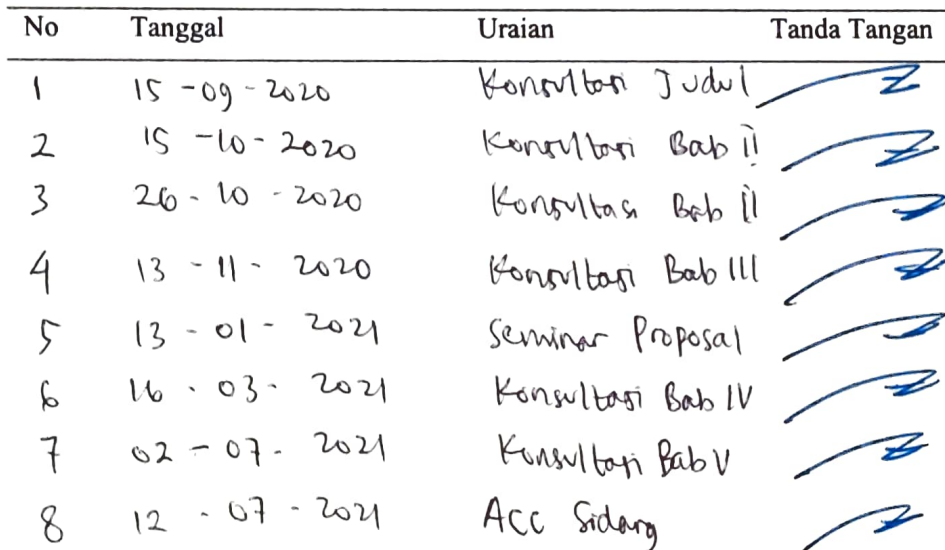 No Tanggal Uraian Tanda Tangan
1 15-09-2020 Konsultasi Judul
2 15-10-2020 Konsultasi Bab II
3 26-10-2020 Konsultasi Bab II
4 13-11-2020 Konsultasi Bab III
5 13-01-2021 Seminar Proposal
6 16-03-2021 Konsultasi Bab IV
7 02-07-2021 Konsultasi Bab V
8 12-07-2021 ACC Sidang